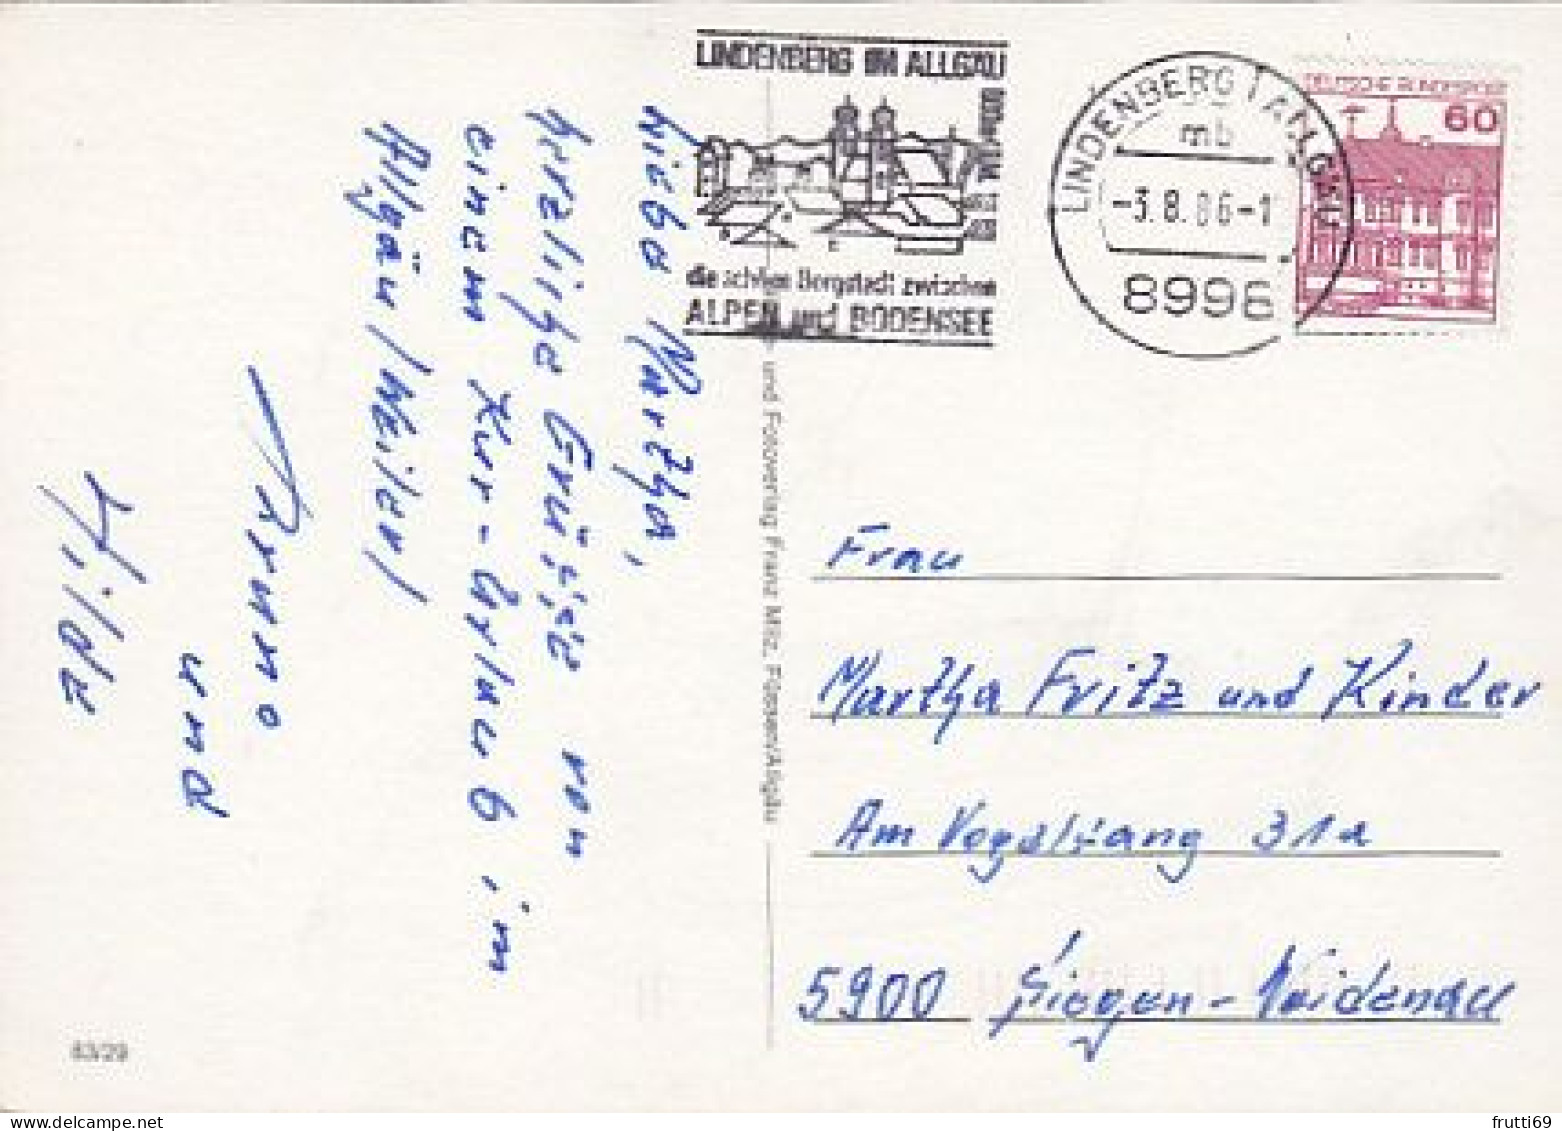 LINDENBERG IM ALLGÄU
die schöne Bergstadt zwischen
ALPEN und BODENSEE
LINDENBERG I ALLGÄU
mb
-3.8.86-1
8996
DEUTSCHE BUNDESPOST
60
Liebe Martha,
herzliche Grüsse von
einem Kur-Urlaub im
Allgäu (Weiler)
Bruno
und
Hilde
und Fotoverlag Franz Milz, Füssen/Allgäu
Frau
Martha Fritz und Kinder
Am Vogelsang 31a
5900 Siegen-Weidenau
63/29
frutti69